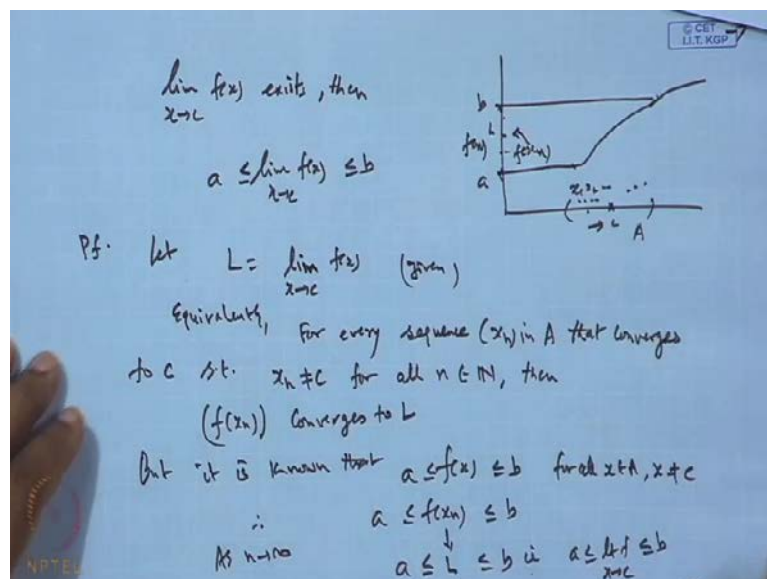 © CET
I.I.T. KGP
lim f(x) exists, then
x→c
a ≤ lim f(x) ≤ b
x→c
b
L
f(x) f(xn)
a
x1 x2 ...
( ) 
→ c A
Pf. Let L = lim f(x) (given)
x→c
Equivalently, For every sequence (xn) in A that converges
to c s.t. xn ≠ c for all n ∈ ℕ, then
(f(xn)) Converges to L
But it is known that a ≤ f(x) ≤ b for all x ∈ A, x ≠ c
∴ a ≤ f(xn) ≤ b
↓
As n→∞ a ≤ L ≤ b ie a ≤ lt f ≤ b
x→c
NPTEL